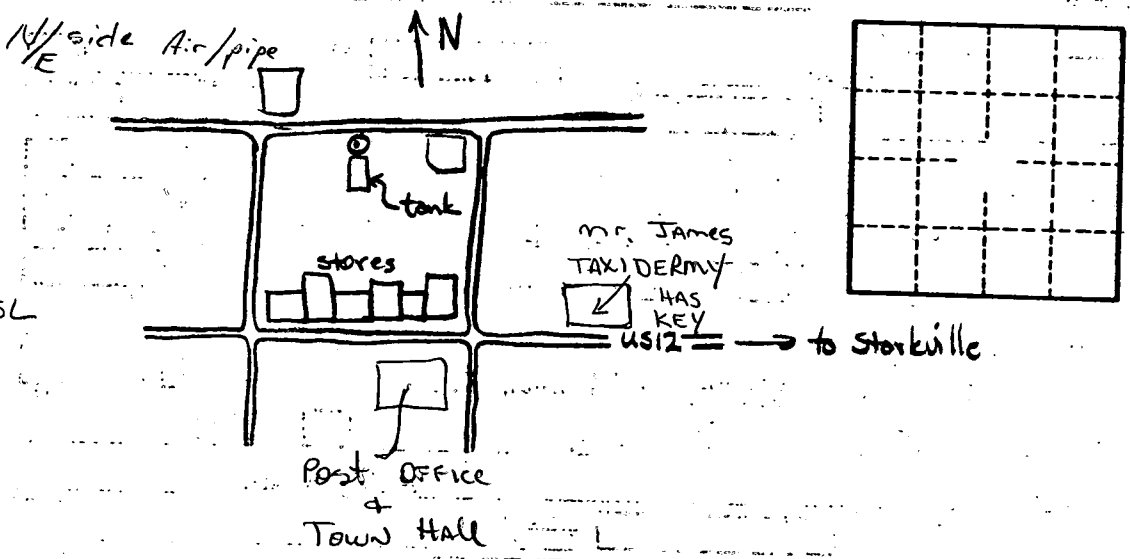 N/E side Air/pipe
N
tank
stores
Mr. JAMES
TAXIDERMY
HAS
KEY
SL
US12
to Starkville
Post OFFICE
&
TOWN HALL